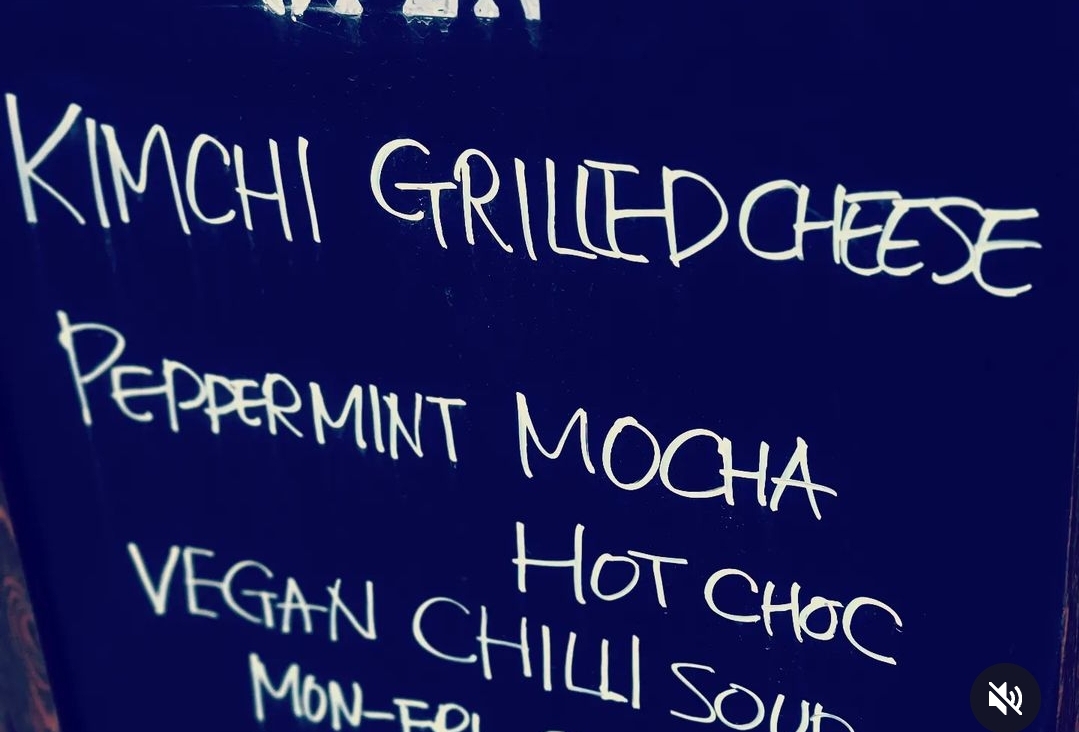 KIMCHI GRILLED CHEESE
PEPPERMINT MOCHA
HOT CHOC
VEGAN CHILLI SOUP
MON-FRI